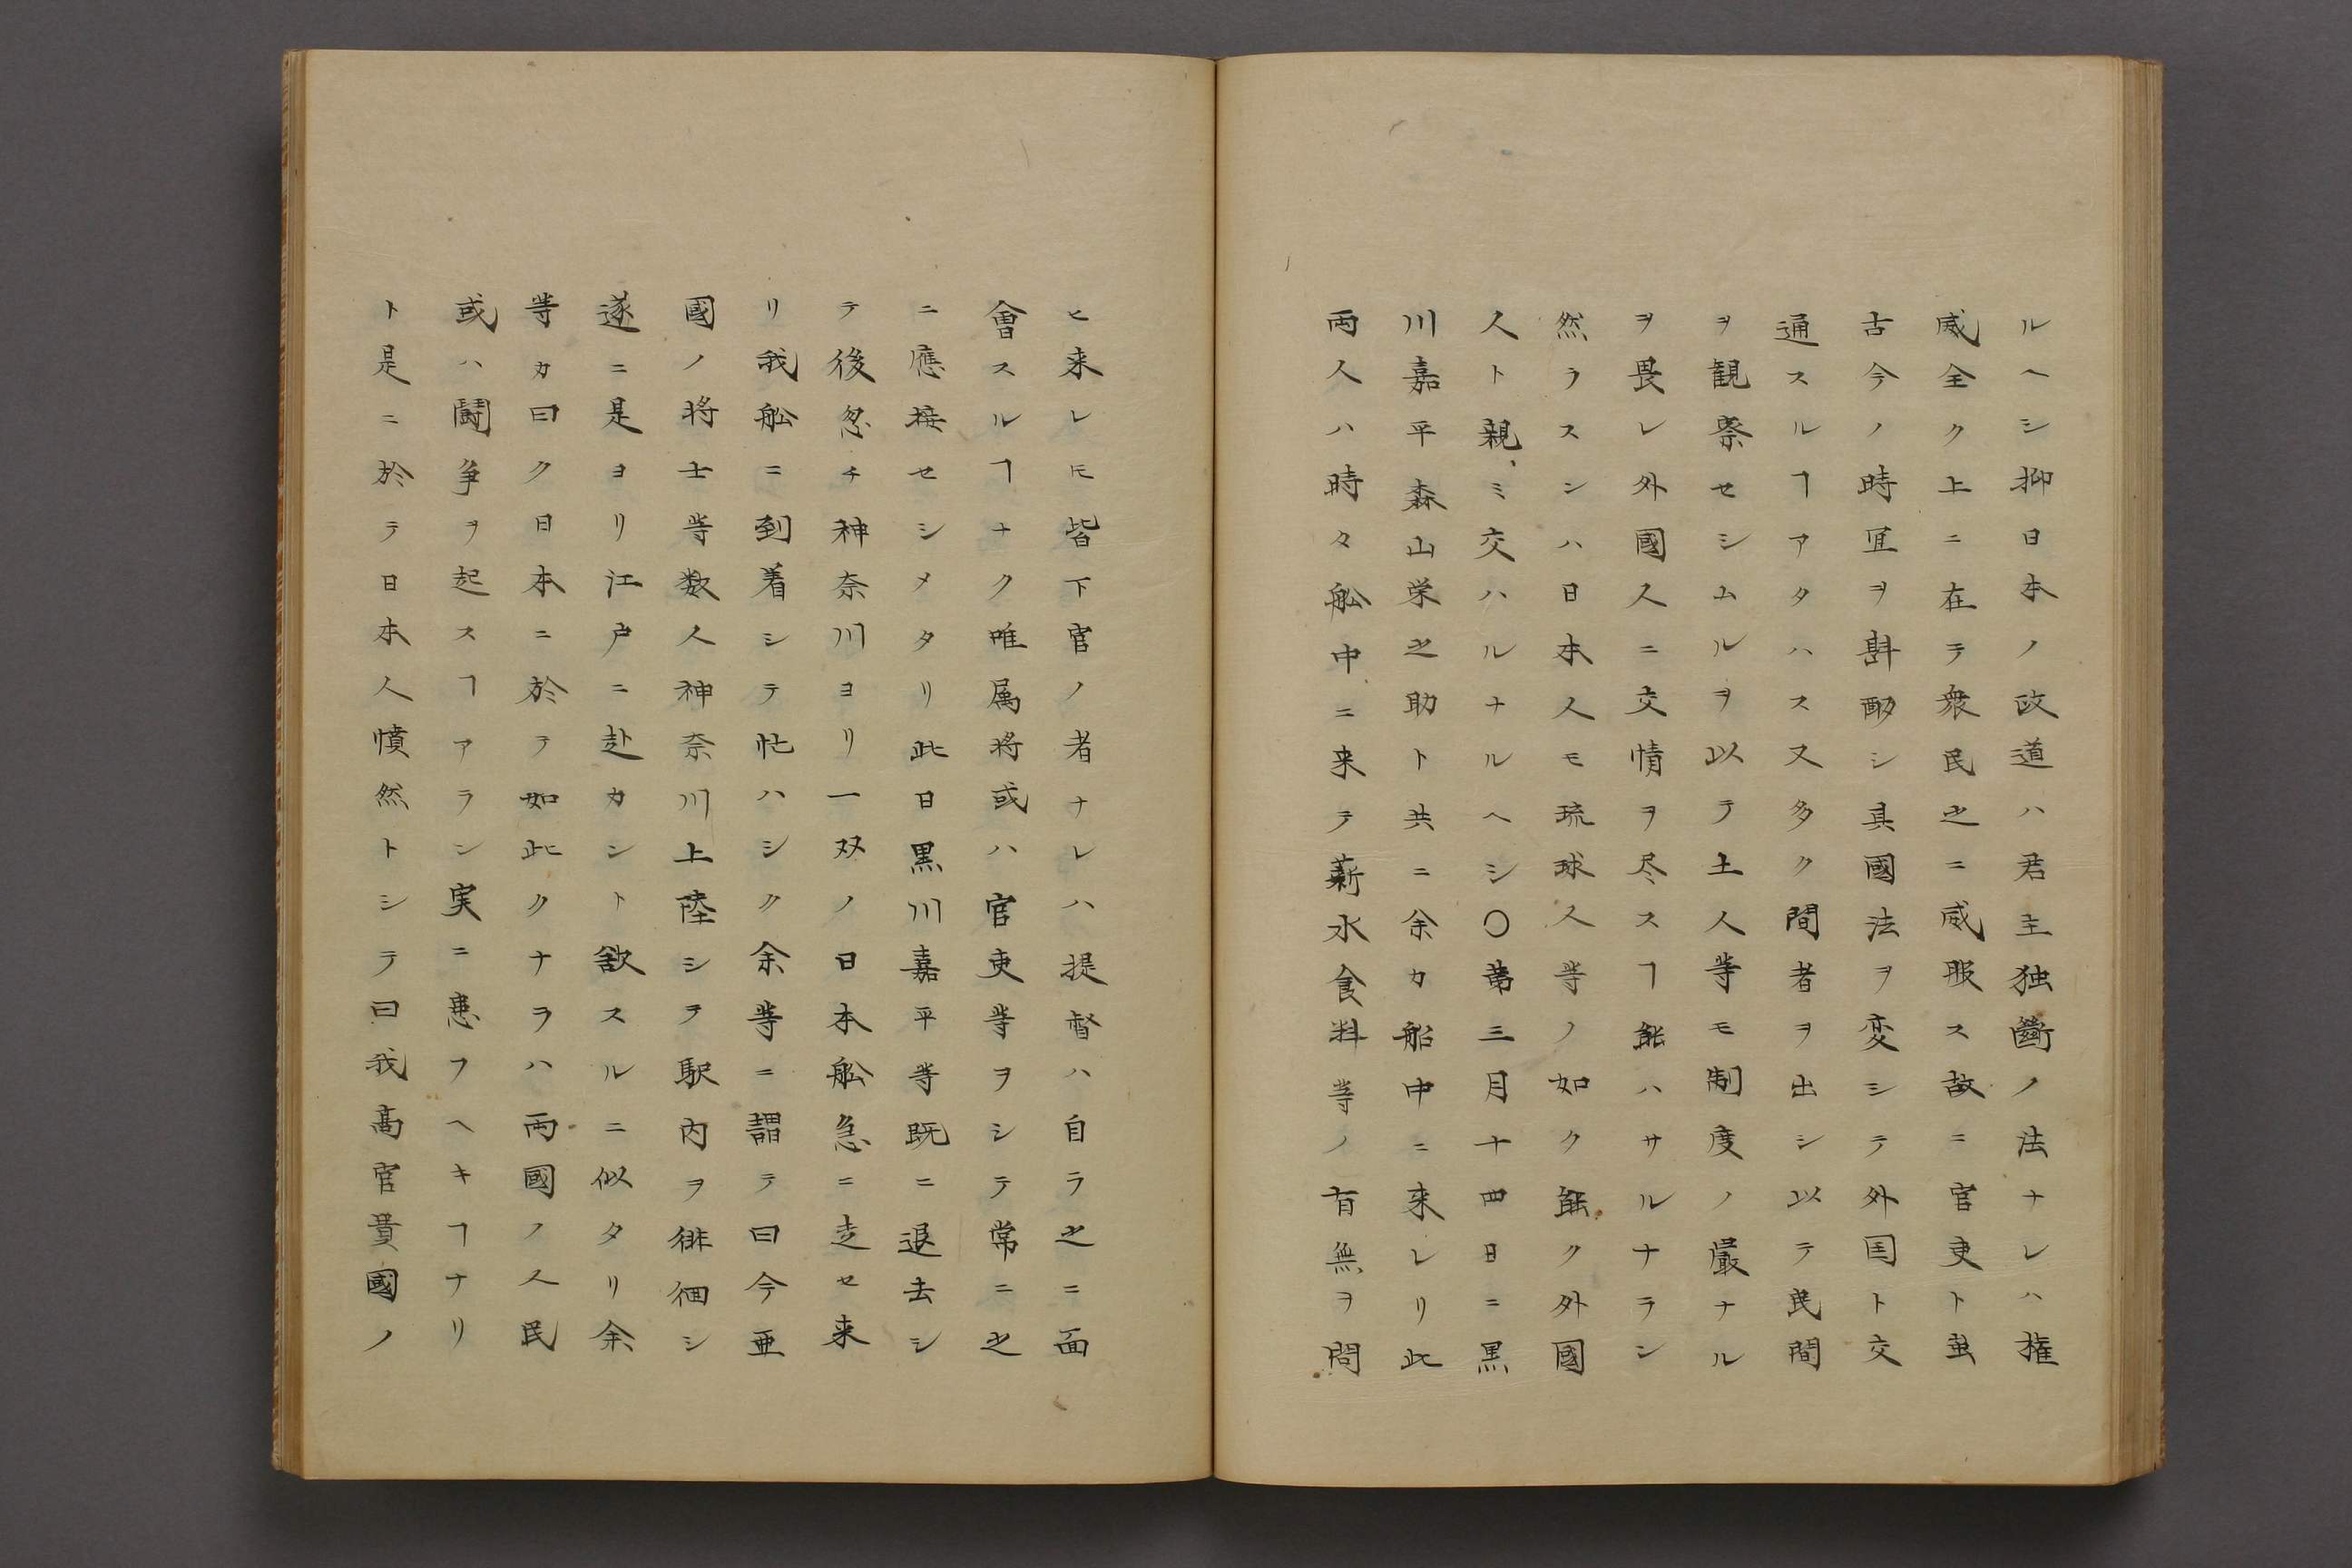 ルヘシ抑日本ノ政道ハ君主独斷ノ法ナレハ権
威全ク上ニ在テ衆民之ニ威服ス故ニ官吏ト虽
古今ノ時冝ヲ斟酌シ其國法ヲ変シテ外国ト交
通スルヿアタハス又多ク間者ヲ出シ以テ民間
ヲ観察セシムルヲ以テ土人等モ制度ノ嚴ナル
ヲ畏レ外國人ニ交情ヲ尽スヿ能ハサルナラン
然ラスンハ日本人モ琉球人等ノ如ク能ク外國
人ト親ミ交ハルナルヘシ〇第三月十四日ニ黒
川嘉平森山栄之助ト共ニ余カ船中ニ来レリ此
両人ハ時々舩中ニ来テ薪水食料等ノ有無ヲ問
ヒ来レモ皆下官ノ者ナレハ提督ハ自ラ之ニ面
會スルヿナク唯属将或ハ官吏等ヲシテ常ニ之
ニ應接セシメタリ此日黒川嘉平等既ニ退去シ
テ後忽チ神奈川ヨリ一双ノ日本舩急ニ走セ来
リ我舩ニ到着シテ忙ハシク余等ニ謂テ曰今亜
國ノ将士等数人神奈川上陸シテ駅内ヲ徘徊シ
遂ニ是ヨリ江戸ニ赴カント欲スルニ似タリ余
等カ曰ク日本ニ於テ如此クナラハ両國ノ人民
或ハ闘争ヲ起スヿアラン実ニ患フヘキヿナリ
ト是ニ於テ日本人憤然トシテ曰我高官貴國ノ